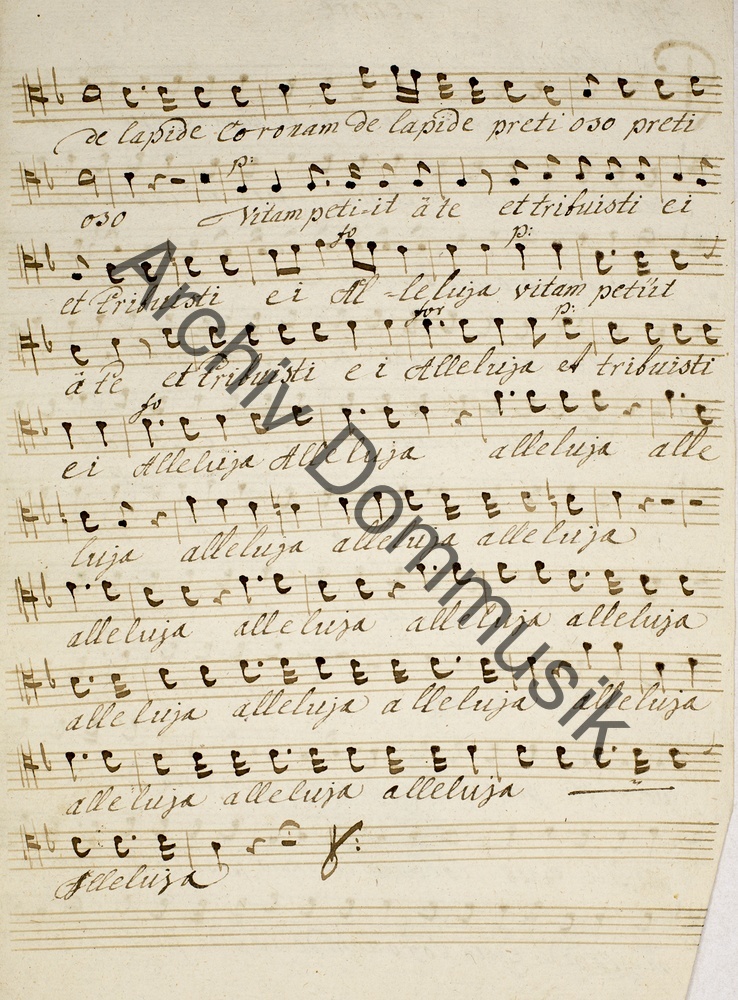 de lapide Coronam de lapide preti oso preti
p:
oso Vitam peti-it äte et tribuisti ei
fo p:
et tribuisti ei Al-leluja vitam petiit
for p:
äte et tribuisti ei Alleluja et tribuisti
fo
ei Alleluja Alleluja alleluja alle
luja alleluja alleluja alleluja
alleluja alleluja alleluja alleluja
alleluja alleluja alleluja alleluja
alleluja alleluja alleluja
Alleluja
Archiv Dommusik